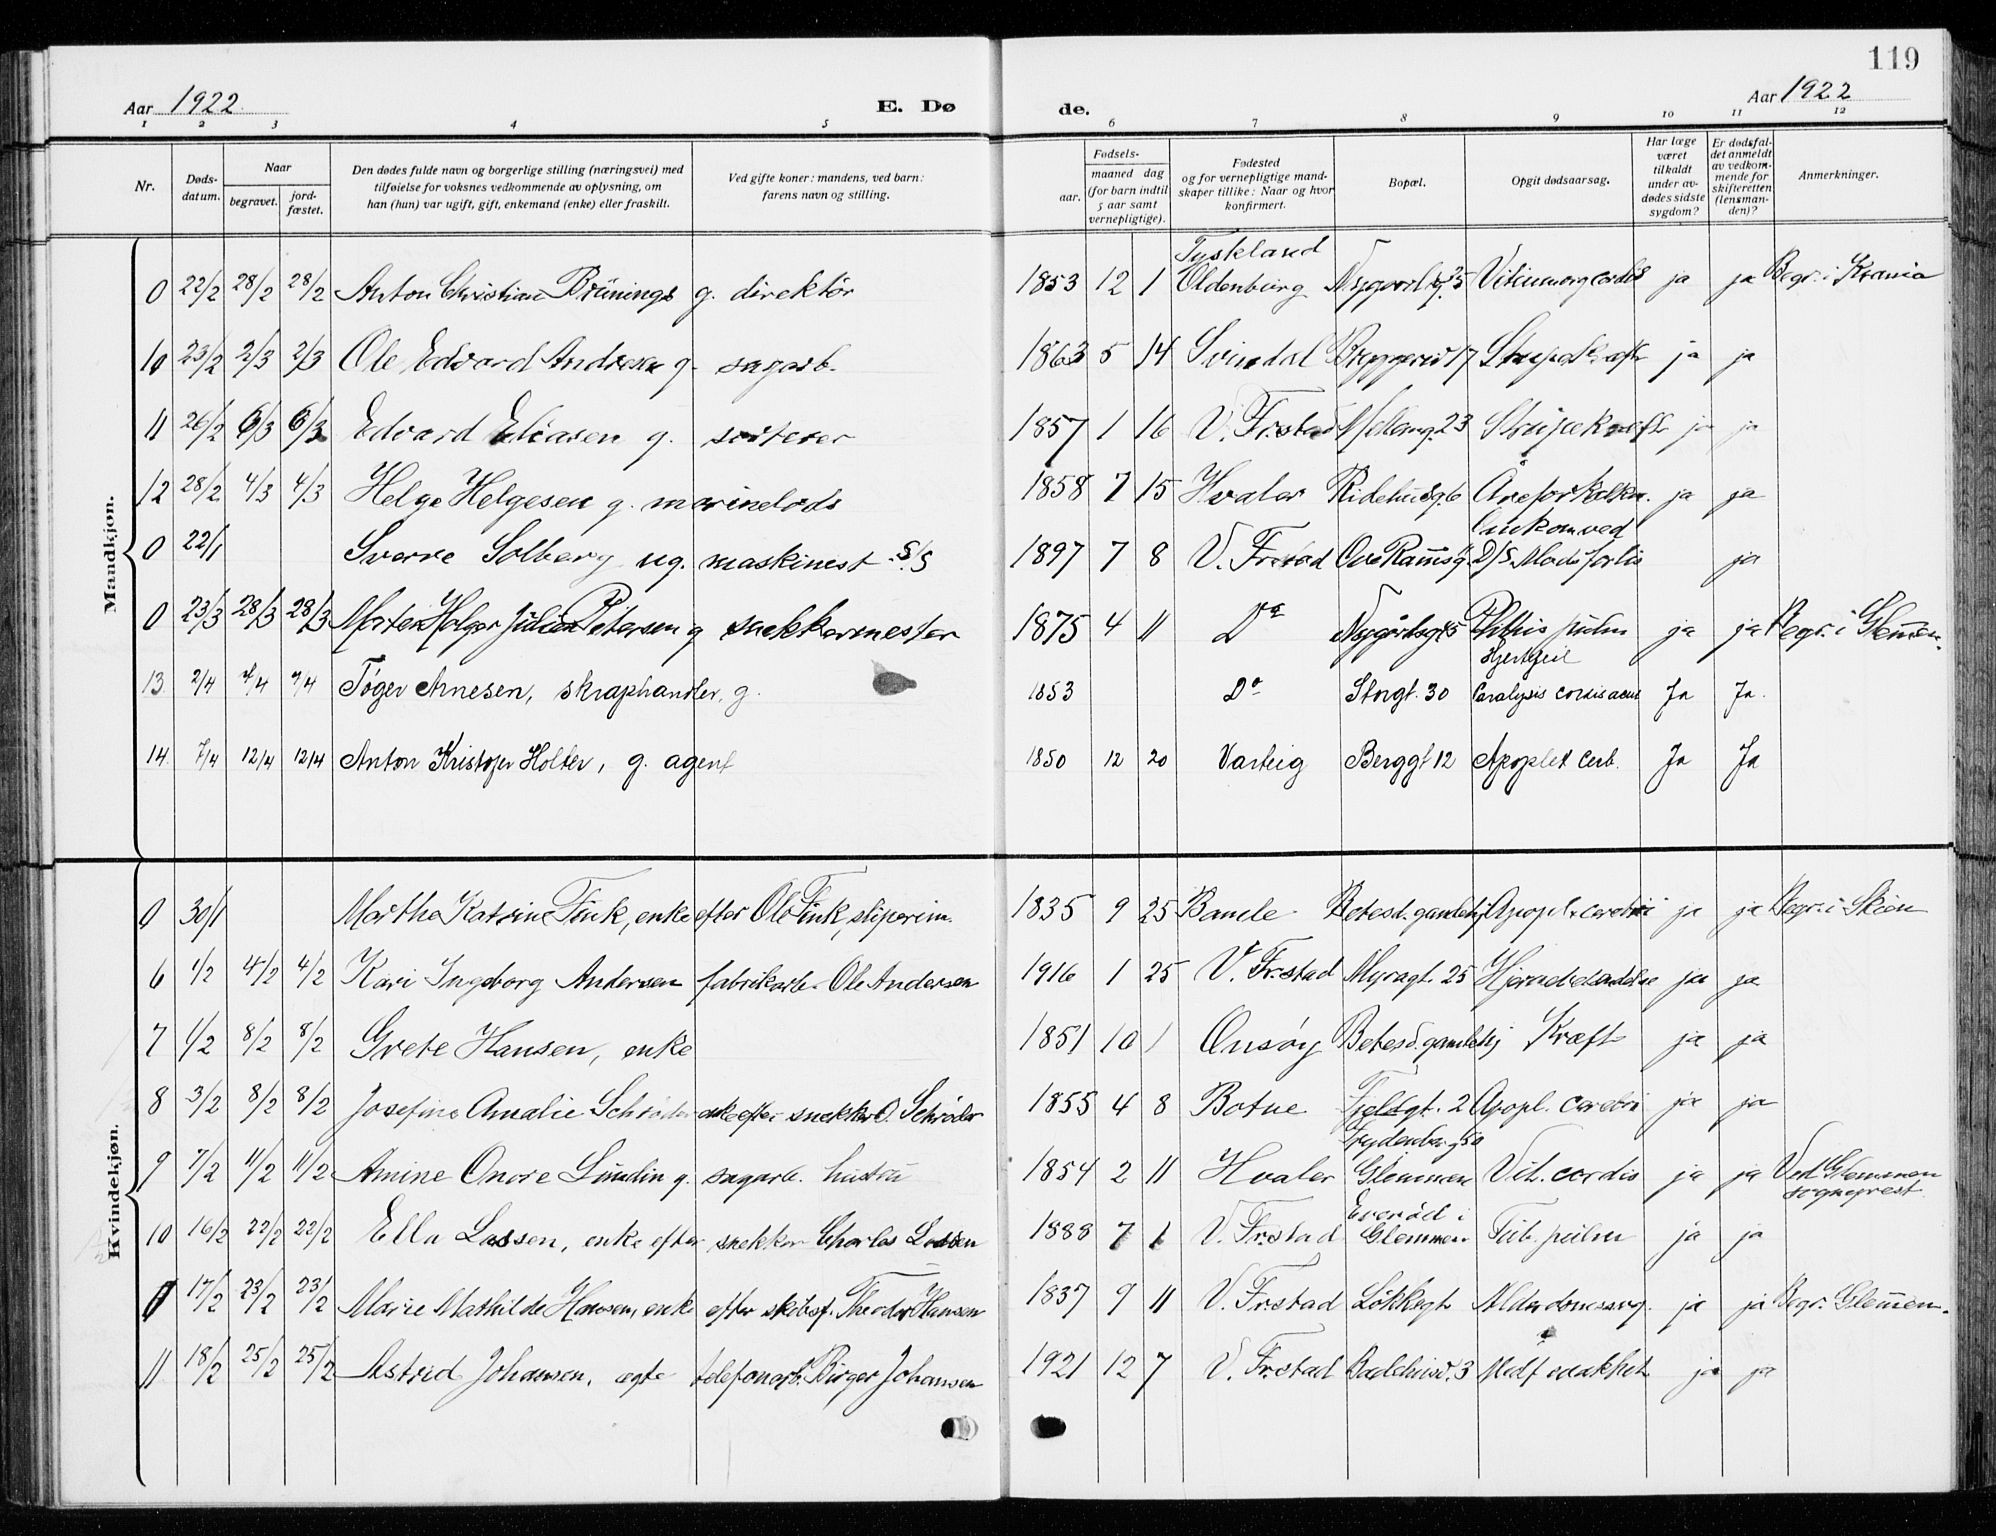 119
Aar 1922. E. Dø de. Aar 1922
1 2 3 4 5 6 7 8 9 10 11 12
Nr. Dødsdatum. Naar begravet. jordfæstet. Den dødes fulde navn og borgerlige stilling (næringsvei) med tilføielse for voksnes vedkommende av oplysning, om han (hun) var ugift, gift, enkemand (enke) eller fraskilt. Ved gifte koner: mandens, ved barn: farens navn og stilling. Fødsels- aar. maaned dag (for barn indtil 5 aar samt vernepligtige). Fødested og for vernepligtige mandskaper tillike: Naar og hvor konfirmert. Bopæl. Opgit dødsaarsag. Har læge været tilkaldt under avdødes sidste sygdom? Er dødsfaldet anmeldt av vedkommende for skifteretten (lensmanden)? Anmerkninger.
Mandkjøn.
0 22/2 28/2 28/2 Anton Christian Brünings g. direktør 1853 12 1 Tyskland Oldenburg 25 ja ja Begr. i Krania
10 23/2 2/3 2/3 Ole Edvard Andresen g. sagarb. 1863 5 14 Svindal Bryggeriv 17 ja ja
11 26/2 6/3 6/3 Edvard Eliasen g. sorterer 1857 1 16 V. Fr.stad Mellemg. 23 Strupekræft ja ja
12 28/2 4/3 4/3 Helge Helgesen g. marinelods 1858 7 15 Hvaler Ridehusg. 6 Åreforkalkn. ja ja
0 22/1 Sverre Solberg ug. maskinest S/S 1897 7 8 V. Fr.stad Ole Ramsg. Omkom ved D/S Mods forlis ja
0 23/3 28/3 28/3 Morten Holger Julius Petersen g snekkermester 1875 4 11 Do Nygårdsg. 5 Phthis pulm Hjertfeil ja ja Begr. i Glemmen.
13 2/4 7/4 7/4 Tøger Arnesen, skraphandler, g. 1853 Do Storgt. 30 Paralysis cordis acut Ja Ja.
14. 7/4 12/4 12/4 Anton Kristofer Holter, g. agent 1850 12 20 Varteig Berggt 12 Apoplex Cerb. Ja Ja
Kvindekjøn.
0 30/1 Marthe Katrine Fink, enke efter Ole Fink, sliperim. 1835 9 25 Bamle Betesd. gamlehj Apopl. cerebri ja ja Begr. i Skien
6 1/2 4/2 4/2 Kari Ingeborg Andersen fabrikarb. Ole Andersen 1916 1 25 V. Fr.stad Myragt. 25 ja ja
7 1/2 8/2 8/2 Grete Hansen, enke 1851 10 1 Onsøy Betesd. gamlehj Kræft ja ja
8 3/2 8/2 8/2 Josefine Amalie Schrøder enke efter snekker O. Schrøder 1855 4 8 Botne Fjeldgt. 2 Apopl. cerebri ja ja
9 7/2 11/2 11/2 Amine Onore Lundin g. sagarb. hustru 1854 2 11 Hvaler Frydenberg 50 Glemmen Vit. cordis ja ja Ved Glemmen sogneprest
10 16/2 22/2 22/2 Ella Lassen, enke efter snekker Charles Lassen 1888 7 1 V. Fr.stad Evenrød i Glemmen Tub. pulm ja ja
0 17/2 23/2 23/2 Marie Mathilde Hansen, enke efter skibsf. Theodor Hansen 1837 9 11 V. Fr.stad Løkkegt Alderdomssvag. ja ja Begr. Glemmen.
11 18/2 25/2 25/2 Astrid Johansen, egte telefonarb. Birger Johansen 1921 12 7 V. Fr.stad Badehusv. 3 Medf svakhet ja ja